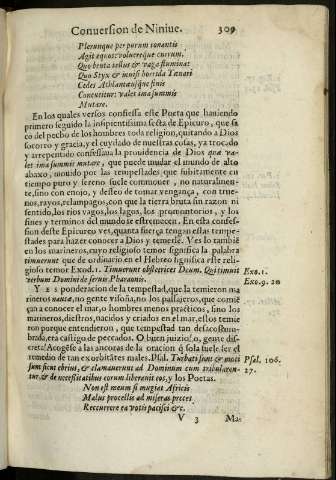 Conuersion de Niniue. 309
Plerunque per purum tonantis
Agit equos: volucreque currum.
Quo bruta tellus & vaga flumina:
Quo Styx & inuisi horrida Tænari
Cedes Athlanteusque finis
Concutitur: valet ima summis
Mutare.
En los quales versos confiessa este Poeta que hauiendo
primero seguido la insipientissima secta de Epicuro, que sa
co del pecho de los hombres toda religion, quitando a Dios
socorro y gracia, y el cuydado de nuestras cosas, ya trocado
y arrepentido confiessa la prouidencia de Dios qua va-
let ima summis mutare, que puede mudar el mundo de alto
abaxo, mouido por las tempestades que subitamente en
tiempo puro y sereno suele commouer, no naturalmen-
te, sino con enojo, y desseo de tomar vengança, con true-
nos, rayos, relampagos, con que la tierra bruta sin razon ni
sentido, los rios vagos, los lagos, los promontorios, y los
fines y terminos del mundo se estremecen. En esta confes-
sion deste Epicureo ves, quanta fuerça tengan estas tempe-
stades para hazer conocer a Dios y temerle. Ves lo tambiē
en los marineros, cuyo religioso temor significa la palabra
timuerunt que de ordinario en el Hebreo significa este reli-
gioso temor Exod. 1. Timuerunt obstetrices Deum. Qui timuit
verbum Domini de seruis Pharaonis.
Exo. 1.
Exo. 9. 20
Y es de ponderacion de la tempestad, que la temieron ma
rineros nautæ, no gente visoña, no los passajeros, que comiē
çan a conocer el mar, o hombres menos practicos, sino los
marineros, diestros, nacidos y criados en el mar, estos temie
ron porque entendieron, que tempestad tan desacostum-
brada, era castigo de peccados. O buen juizio!, o gente dis-
creta! Acogese a las ancoras de la oracion q̄ sola suele ser el
remedio de tan exorbitātes males. Psal. Turbati sunt & moti
sunt sicut ebrius, & clamauerunt ad Dominum cum tribularen-
tur, & de necessitatibus eorum liberauit eos, y los Poetas.
Psal. 106.
27.
Non est meum si mugiat Africis
Malus procellis ad miseras preces
Reccurrere ea votis pacisci &c.
V 3 Ma-